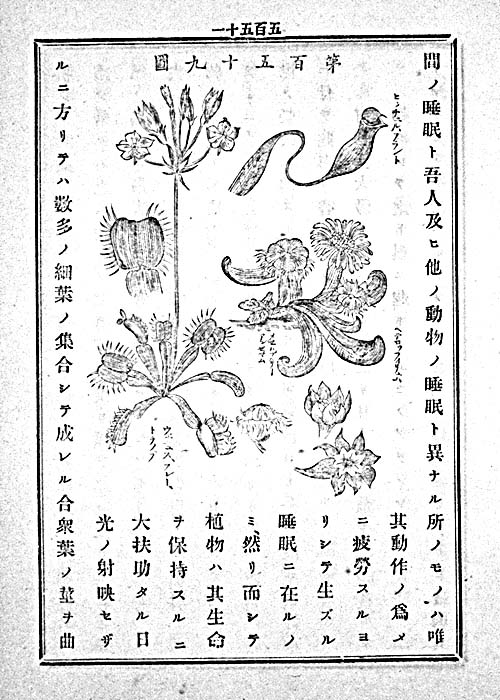 五百五十一
第百五十九圖
間ノ睡眠ト吾人及ヒ他ノ動物ノ睡眠ト異ナル所ノモノハ唯
其動作ノ爲メ
ニ疲勞スルヨ
リシテ生ズル
睡眠ニ在ルノ
ミ然リ而シテ
植物ハ其生命
ヲ保持スルニ
大扶助タル日
光ノ射映セザ
ルニ方リテハ數多ノ細葉ノ集合シテ成レル合衆葉ノ莖ヲ曲